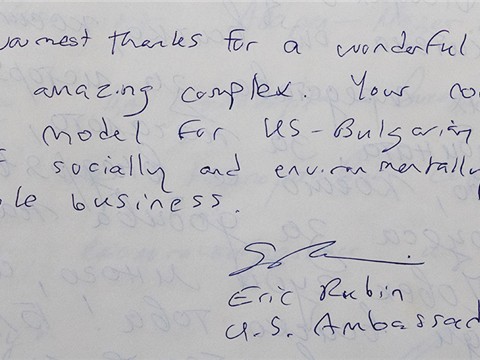 warmest thanks for a wonderful
amazing complex. Your
model for US-Bulgarian
socially and environmentally
business.
Eric Rubin
U.S. Ambassad